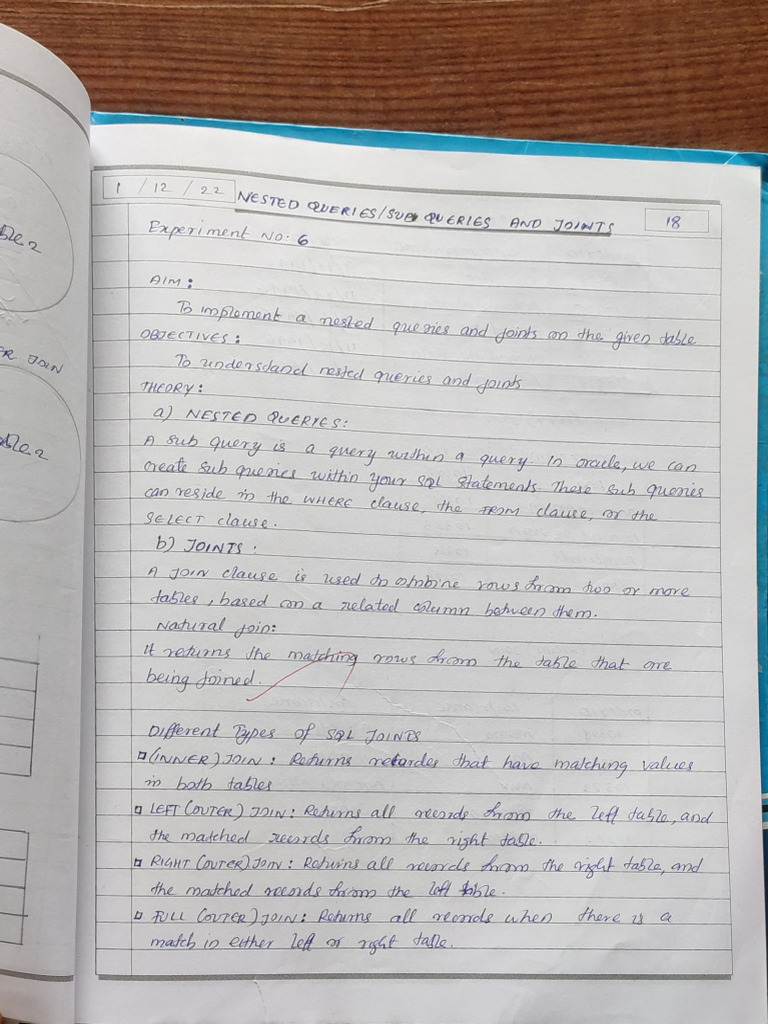 ble 2
ER JOIN
ble 2
1 / 12 / 22
NESTED QUERIES/SUB QUERIES AND JOINTS
18
Experiment NO: 6
AIM:
To implement a nested queries and joints on the given table
OBJECTIVES:
To understand nested queries and joints
THEORY:
a) NESTED QUERIES:
A sub query is a query within a query. In oracle, we can
create sub queries within your SQL statements. These sub queries
can reside in the WHERE clause, the FROM clause, or the
SELECT clause.
b) JOINTS:
A JOIN clause is used to combine rows from two or more
tables, based on a related column between them.
Natural join:
It returns the matching rows from the table that are
being joined.
Different Types of SQL JOINTS
(INNER) JOIN: Returns recordes that have matching values
in both tables
LEFT (OUTER) JOIN: Returns all records from the left table, and
the matched records from the right table.
RIGHT (OUTER) JOIN: Returns all records from the right table, and
the matched records from the left table.
FULL (OUTER) JOIN: Returns all records when there is a
match in either left or right table.